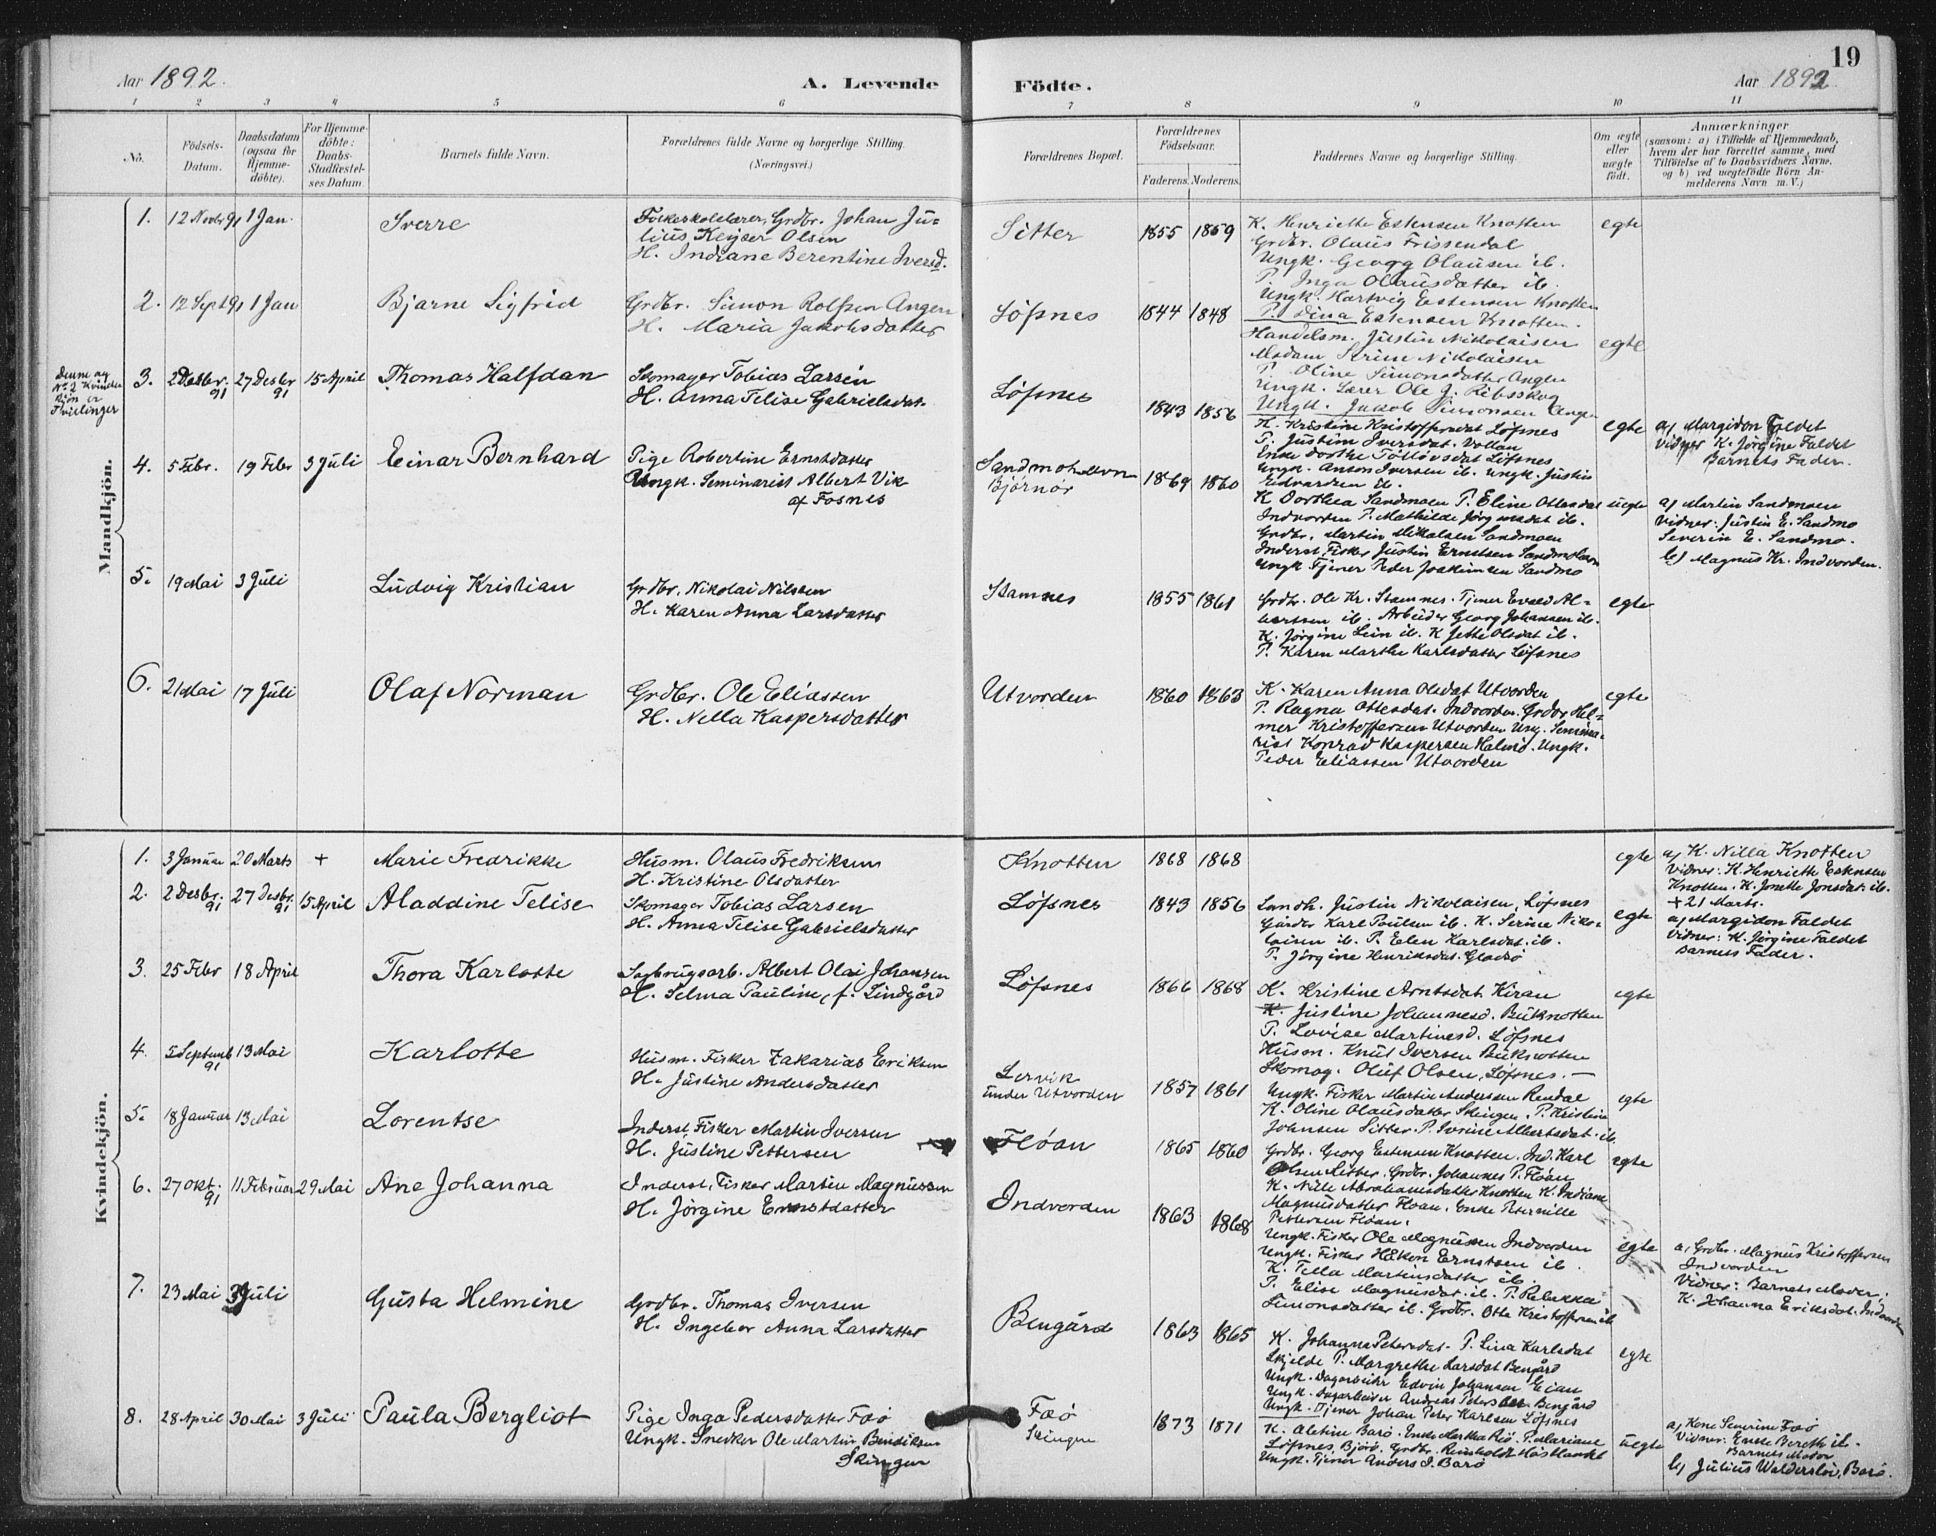 19
Aar 1892.
A. Levende
Födte.
Aar 1892.
1 2 3 4 5 6 7 8 9 10 11
No.
Födsels-
Datum.
Daabsdatum
(ogsaa for
Hjemme-
döbte).
For Hjemme-
döbte:
Daabs-
Stadfæstel-
ses Datum
Barnets fulde Navn.
Forældrenes fulde Navne og borgerlige Stilling.
(Næringsvei.)
Forældrenes Bopæl.
Forældrenes
Födselsaar.
Faderens. Moderens.
Faddernes Navne og borgerlige Stilling.
Om ægte
eller
uægte
födt.
Anmærkninger
(saasom: a) i Tilfælde af Hjemmedaab,
hvem der har forrettet samme, med
Tilföielse af to Daabsvidners Navne.
og b) ved uægtefödte Börn An-
melderens Navn m. V.)
Mandkjön.
1. 12 Novbr 91 1 Jan. Sverre
Grdbr. Johan Ju-
lius Keyser Olsen
H. Indiane Berentine Iversd.
Sitter 1855 1859
K. Henriette Estensen Knotten
Grdbr. Olaus Frissendal
Ungk. Georg Olausen ib.
P. Inga Olausdatter ib.
Ungk. Hartvig Estensen Knotten
P. Dina Estensen Knotten.
egte
2. 12 Sept 91 1 Jan Bjarne Sigfrid
Grdbr. Simon Rolfsen Angen
H. Maria Jakobsdatter
Löfsnes 1844 1848
Handelsm. Justin Nikolaisen
Madam Serine Nikolaisen
P. Oline Simonsdatter Angen
Ungk. Lærer Ole J. Ribsskog
Ungk. Jakob Simonsen Angen
egte
Denne og
No 2 Kvinde
kjön er
Tvillinger
3. 2 Desbr. 91 27 Desbr 91 15 April Thomas Halfdan
Skomager Tobias Larsen
H. Anna Telise Gabrielsdat.
Löfsnes 1843 1856
K. Kristine Kristoffersdat Löfsnes
P. Justine Iversdat. Vollan
Enke Dorthe Tollövsdat Löfsnes
Ungk. Anton Iversen ib. Ungk. Justin
Edvardsen ib.
egte
a) Margidon Faldet
Vidner K. Jörgine Faldet
Barnets Fader.
4. 5 Febr. 19 Febr 3 Juli Einar Bernhard
Pige Robertine Ernstdatter
Ungk. Seminarist Albert Vik
af Fosnes
Bjørnør 1869 1860
K Dorthea Sandmoen P. Eline Ottesdat
Indvorden P. Mathilde Jörginsdat ib.
Grdbr. Martin Mikalsen Sandmoen
Inderst Fisker Justin Ernstsen
Ungk Tjener Peder Joakimsen Sandmo
uegte
a) Martin Sandmoen
Vidner: Justin E. Sandmo
Severin E. Sandmo.
b) Magnus Kr. Indvorden.
5. 19 Mai 3 Juli Ludvig Kristian
Grdbr. Nikolai Nilssen
H. Karen Anna Larsdatter
Stamnes 1855 1861
Grdbr. Ole Kr. Stamnes. Tjener Evald Al-
bertsen ib. Arbeider Georg Johansen ib.
K. Jörgine Lein ib. K Jette Olsdat ib.
P. Karen Marthe Karlsdatter Löfsnes
egte
6. 21 Mai 17 Juli Olaf Norman
Grdbr. Ole Eliassen
H. Nella Kaspersdatter
Utvorden 1860 1863
K. Karen Anna Olsdat Utvorden
P. Ragna Ottesdat. Indvorden. Grdbr Hel-
mer Kristoffersen Utvorden Ung. Semina-
rist Konrad Kaspersen Ungk.
Peder Eliassen Utvorden
egte
Kvindekjön.
1. 3 Januar 20 Marts + Marie Fredrikke
Husm. Olaus Fredriksen
H. Kristine Olsdatter
Knotten 1868 1868
egte
a) K. Nilla Knotten
Vidner: K. Henriette Estensen
Knotten. K. Jonette Jonsdat. ib.
+ 21 Marts.
2. 2 Desbr. 91 27 Desbr. 91 15 April Aladdine Telise
Skomager Tobias Larsen
H. Anna Telise Gabrielsdatter
Löfsnes 1843 1856
Landh. Justin Nikolaisen, Löfsnes
Gårdbr Karl Paulsen ib. K. Serine Niko-
laisen ib. P. Elen Karlsdat. ib.
P. Jörgine Henriksdat.
egte
a) Margidon Faldet
Vidner: K. Jörgine Faldet
Barnets Fader.
3. 25 Febr 18 April Thora Karlotte
Sagbrugsarb. Albert Olai Johansen
H. Selma Pauline, f. Lindgård
Löfsnes 1866 1868
K. Kristine Arntsdat. Kiran
K. Justine Johannesd. Buknotten
P. Lovise Martinesd. Löfsnes
Husm. Knut Iversen Buknotten
Skomag. Oluf Olsen, Löfsnes. —
egte
4. 5 Septemb 91 13 Mai Karlotte
Husm. Fisker Zakarias Eriksen
H. Justine Andersdatter
Lervik
under Utvorden 1857 1861
Ungk. Fisker Martin Andersen Rendal
K. Oline Olausdatter Skingen. P. Kristine
Johnsen Sitter. P. Albertsdat. ib.
egte
5. 18 Januar 13 Mai Lorentse
Inderst Fisker Martin Iversen
H. Justine Pettersen
Flöan 1865 1860
Grdbr. Georg Estensen Knotten. Ind. Karl
Olsen Sitter. Grdbr. Johannes P. Flöan
K. Nille Abrahamsdatter Knotten K. Indiane
Magnusdatter Floan. Enke Peternille
Pettersen Flöan.
egte
6. 27 Okt. 91 11 Februar 29 Mai Ane Johanna
Inderst, Fisker Martin Magnussen
H. Jörgine Ernstdatter
Indvorden 1863 1868
Ungk. Fisker Ole Magnussen Indvorden
Ungk. Fisker Håkon Ernstsen ib.
K. Tella Martinsdatter ib.
P. Elise Magnusdat. ib. P. Rebekka
Simonsdatter ib. Grdbr. Otte Kristoffersen ib
egte
a) Grdbr. Magnus Kristoffersen
Indvorden
Vidner: Barnets Moder,
K. Johanna Eriksdat. Indvorden
7. 23 Mai 3 Juli Gusta Helmine
Grdbr. Thomas Iversen
H. Ingebor Anna Larsdatter
Bengård 1863 1865
K. Johanna Petersdat. P. Lina Karlsdat
Skjelde P. Margrethe Larsdat Bengård
Ungk. Dagarbeider Edvin Johansen Eian
Ungk. Dagarbeider Andreas Petersen Bengård
Ungk. Tjener Johan Peter Karlsen Löfsnes
egte
8. 28 April 30 Mai 3 Juli Paula Bergliot
Pige Inga Pedersdatter Faö
Ungk. Snedker Ole Martin Bendiksen
Skingen
Faö
Skingen 1873 1871
K. Aletine Barö. Enke Martha Riö. P. Mariane
Löfsnes, Björö. Grdbr. Reinholdt
Ungk. Tjener Anders I. Barö
uegte
a) Kone Severine Faö
Vidner: Enke Bereth ib.
Barnets Moder
b) Julius Barö.